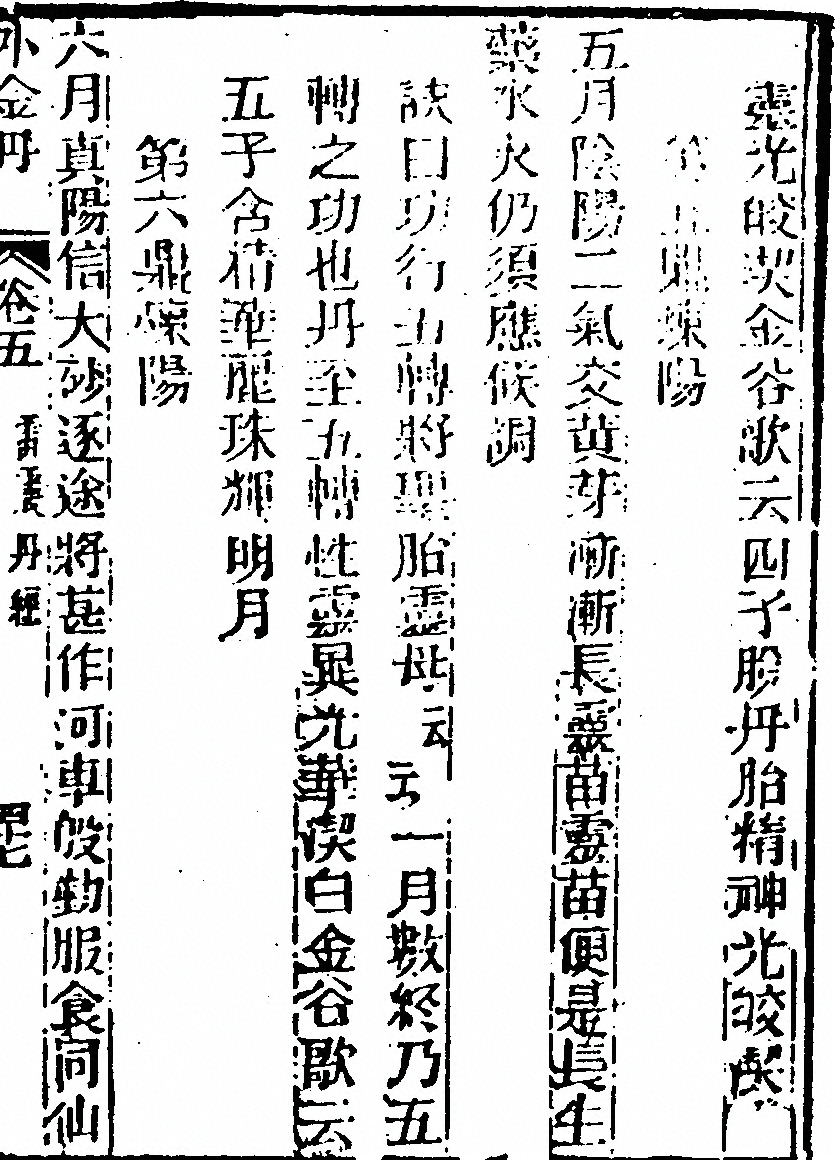 靈光皎潔金谷歌云四子脱丹胎精神光皎潔
第五鼎煉陽
五月陰陽二氣交黄芽漸漸長靈苗靈苗便是長生
藥水火仍須應候調
訣曰功行五轉將聖胎靈母云云一月數終乃五
轉之功也丹至五轉性靈異光華潔白金谷歌云
五子含精華驪珠輝明月
第六鼎煉陽
六月真陽信大砂逐途將甚作河車般勤服食同仙
外金丹
卷五
丹經